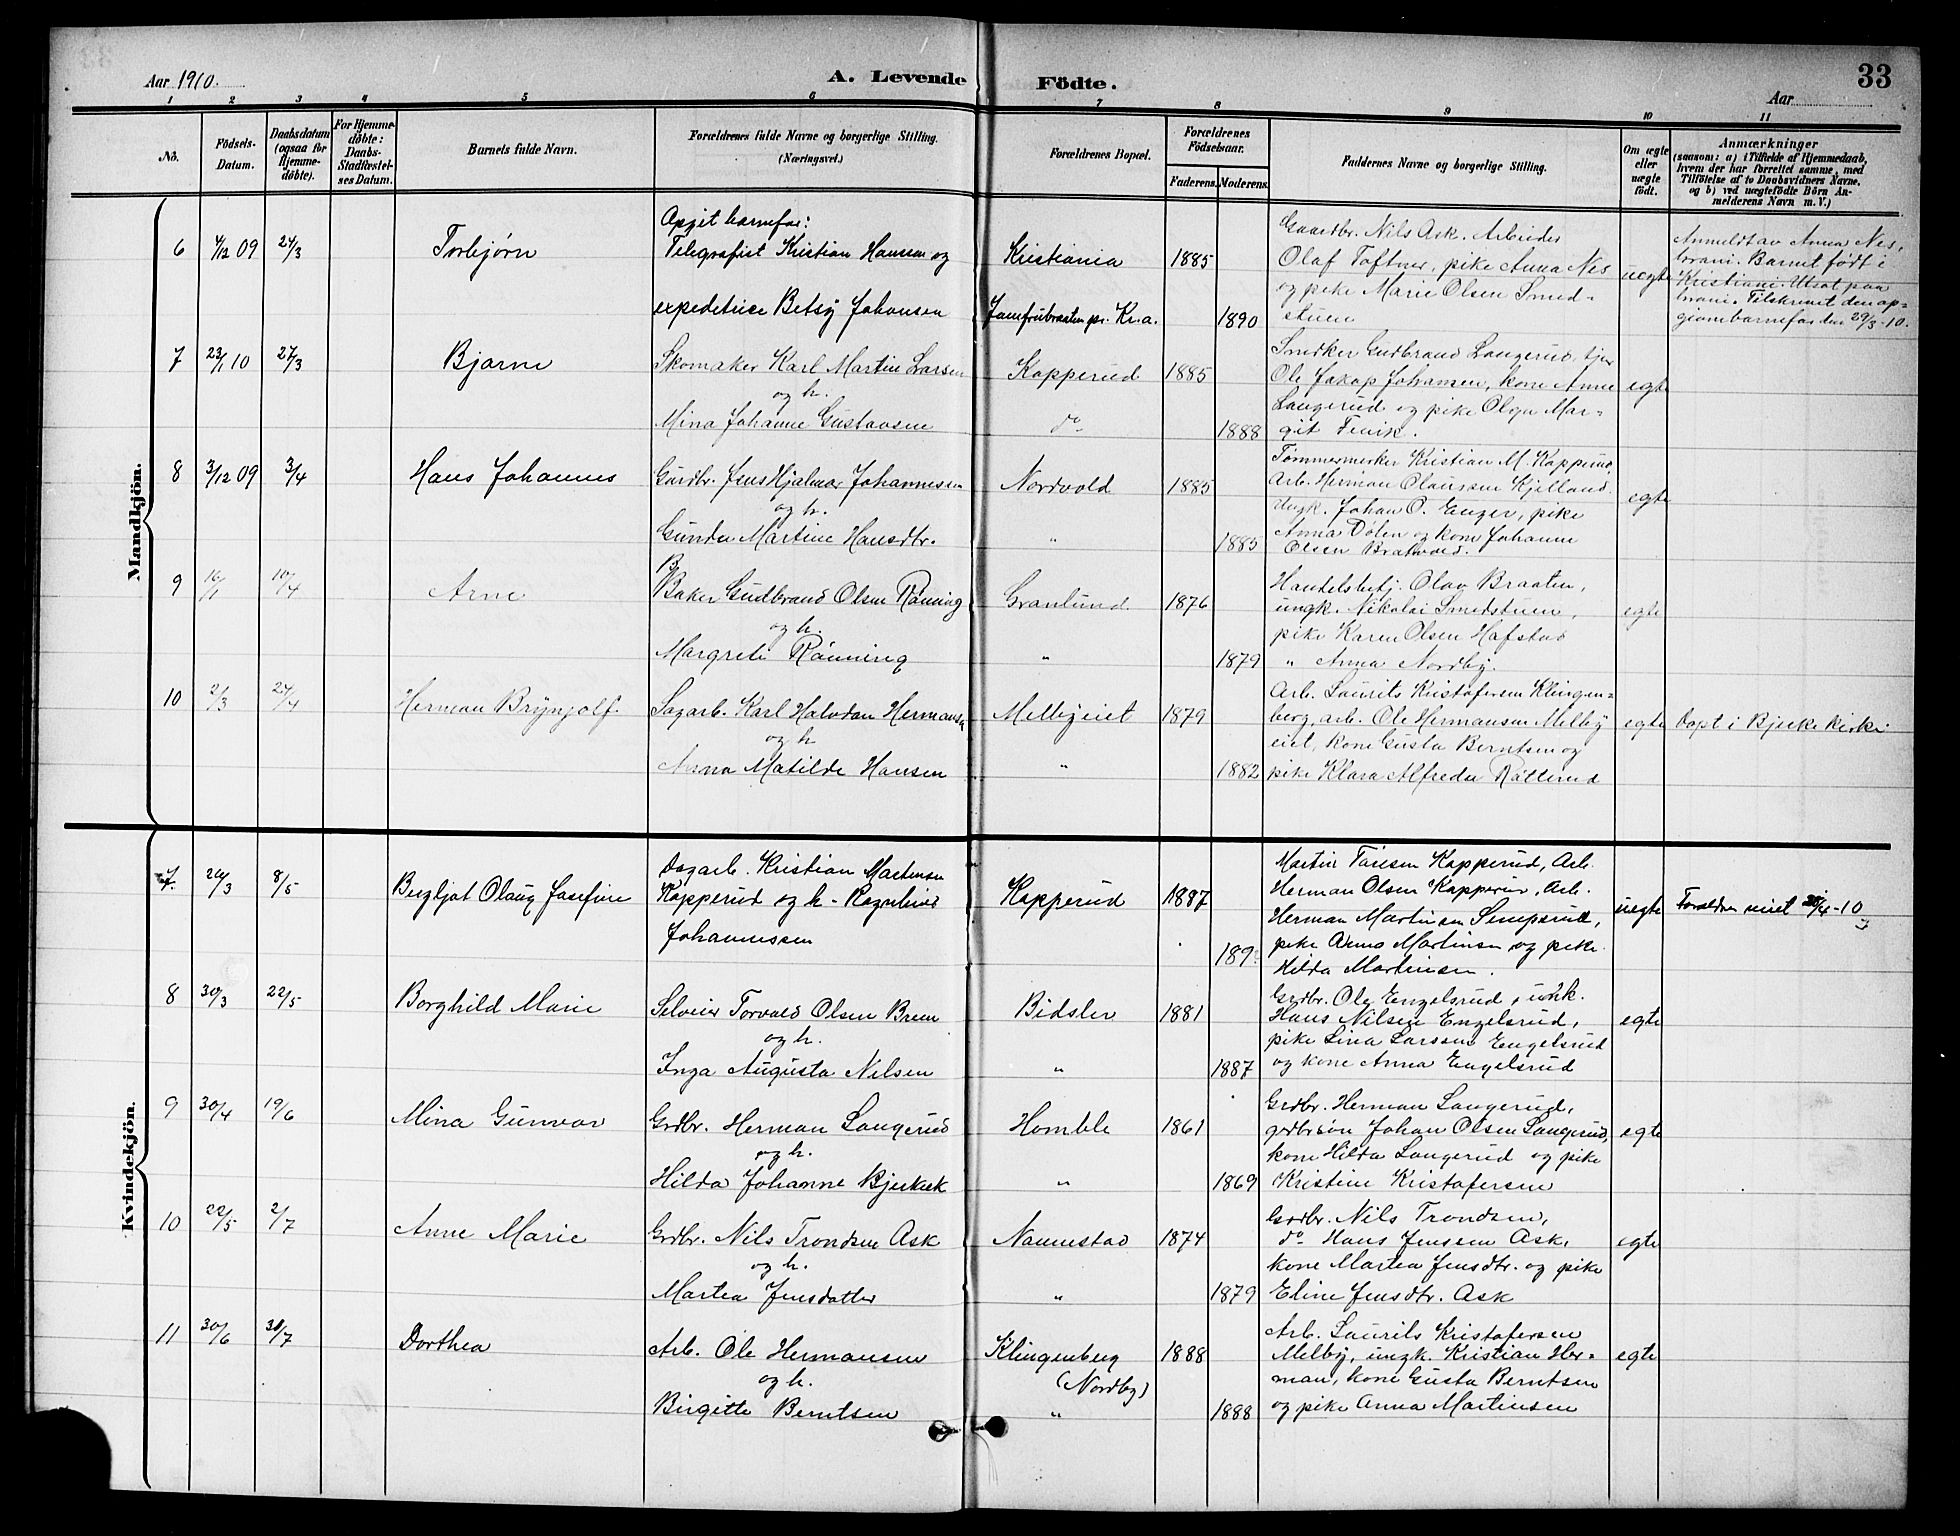 Aar 1910.
A. Levende Födte.
33
Aar
1 2 3 4 5 6 7 8 9 10 11
No.
Födsels-Datum.
Daabsdatum (ogsaa for Hjemme-döbte).
For Hjemme-döbte: Daabs-Stadfæstel-ses Datum.
Barnets fulde Navn.
Forældrenes fulde Navne og borgerlige Stilling.
(Næringsvei.)
Forældrenes Bopæl.
Forældrenes Födselsaar.
Faderens. Moderens.
Faddernes Navne og borgerlige Stilling.
Om ægte eller uægte födt.
Anmærkninger
(saasom: a) i Tilfælde af Hjemmedaab, hvem der har forrettet samme, med Tilföielse af to Daabsvidners Navne, og b) ved uægtefödte Börn An-melderens Navn m. V.)
Mandkjön.
6 4/12 09 24/3 Torbjørn
Opgit barnefar:
Telegrafist Kristian Hansen og
expeditrice Betsy Johansen
Kristiania 1885
Jomfrubraaten pr. Kr.a. 1890
Gaardbr. Nils Ask. Arbeider
Olaf Toftner, pike Anna Nes
og pike Marie Olsen Smed-
stuen
uegte
Anmeldt av Anna Nes,
brani. Barnet født i
Kristiania. Utsat paa
brani. Tilskrevet den op-
givne barnefar den 29/3-10.
7 23/1 10 27/3 Bjarne
Skomaker Karl Martin Larsen
og h.
Mina Johanne Gustavsen
Kopperud 1885
do 1888
Smedker Gudbrand Langerud,
Ole Jakop Johansen, kone Anne
Langerud og pike Olga Mar-
git Fenik.
egte
8 3/12 09 3/4 Hans Johannes
Gardbr. Jens Hjalmar Johannessen
og h.
Gunda Martine Hansdtr.
Nordvold 1885
" 1885
Tømmermerker Kristian M. Kopperud,
Arb. Herman Olaussen Kjelland.
Ungk. Johan O. Enger, pike
Anna Dølen og kone Johanne
Olsen Bratvold.
egte
9 16/1 10/4 Arne
Baker Gudbrand Olsen Rønning
og h.
Margrete Rønning
Granlund 1876
" 1879
Handelsbetj. Olav Braaten,
ungk. Nikolai Smedstuen,
pike Karen Olsen Hafstad
" Anna Nordby.
egte
10 2/3 24/4 Herman Brynjolf.
Sagarb. Karl Halvdan Hermansen
og h
Anna Matilde Hansen
Melbyeiet 1879
" 1882
Arb. Laurits Kristofersen Klingen-
berg, arb. Ole Hermansen Melby
eiet, kone Gusta Berntsen og
pike Klara Alfreda Råtterud
egte
Døpt i Bjerke kirke.
Kvindekjön.
7. 26/3 8/5 Bergljot Olaug Josefine
Dagarb. Kristian Martinsen
Kopperud og h. Ragnhild
Johannessen
Kopperud 1887
189
Martin Tåresen Kopperud, Arb.
Herman Olsen Kopperud, Arb.
Herman Martinsen Semperud,
pike Anna Martinsen og pike
Hilda Martinsen.
uegte
Forældre viet 28/4-10
8 30/3 22/5 Borghild Marie
Selveier Torvald Olsen Breen
og h.
Inga Augusta Nilsen
Bidsler 1881
" 1887
Grdbr. Ole Engelsrud, unk.
Hans Nilsen Engelsrud,
pike Lina Larssen Engelsrud
og kone Anna Engelsrud
egte
9 30/4 19/6 Mina Gunvor
Grdbr. Herman Langerud
og h.
Hilda Johanne Bjerkek
Homble 1861
" 1869
Grdbr. Herman Langerud,
grdbrsøn Johan Olsen Langerud,
kone Hilda Langerud og pike
Kristine Kristofersen
egte
10 22/5 2/7 Anne Marie
Grdbr. Nils Trondsen Ask
og h.
Martea Jensdatter
Nannestad 1874
" 1879
Grdbr. Nils Trondsen,
do Hans Jenssen Ask,
kone Martea Jensdtr. og pike
Eline Jensdtr. Ask
egte
11 30/6 31/7 Dorthea
Arb. Ole Hermansen
og h.
Birgitte Berntsen
Klingenberg 1888
(Nordby)
" 1888
Arb. Laurits Kristofersen
Melby, ungk. Kristian Her-
man, kone Gusta Berntsen
og pike Anna Martinsen
egte